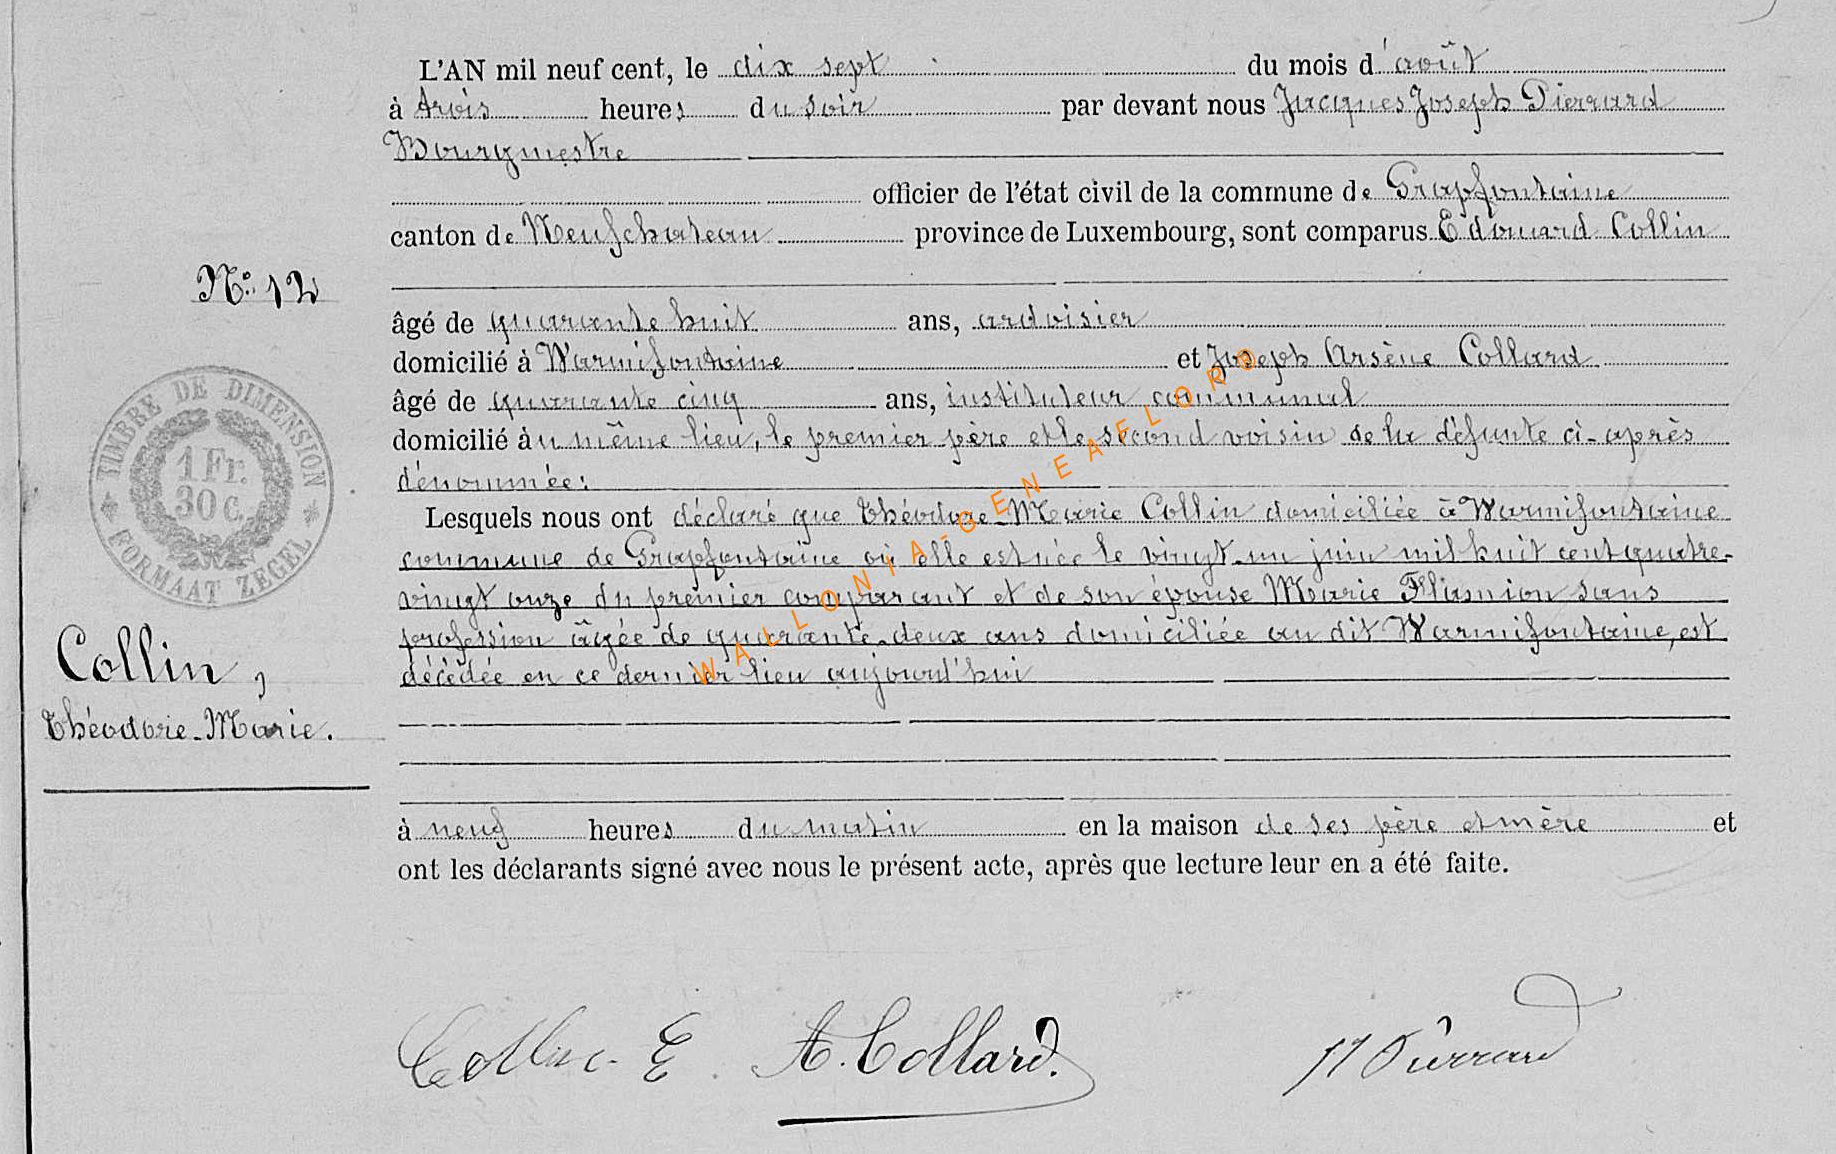 L'AN mil neuf cent, le dix sept du mois d'août
à trois heures du soir par devant nous Jacques Joseph Pierrard
Bourgmestre
officier de l'état civil de la commune de Grapfontaine
canton de Neufchateau province de Luxembourg, sont comparus Edouard Collin
N° 12
âgé de quarante huit ans, ardoisier
domicilié à Warmifontaine et Joseph Arsène Collard
âgé de quarante cinq ans, instituteur communal
domicilié au même lieu, le premier père et le second voisin de la défunte ci-après
dénommée:
TIMBRE DE DIMENSION
1 Fr.
30 C.
FORMAAT ZEGEL
Lesquels nous ont déclaré que Théodore-Marie Collin domiciliée à Warmifontaine
commune de Grapfontaine où elle est née le vingt-un juin mil huit cent quatre-
vingt onze du premier comparant et de son épouse Marie Flamion sans
profession âgée de quarante-deux ans domiciliée au dit Warmifontaine, est
décédée en ce dernier lieu aujourd'hui
Collin,
Théodore-Marie.
à neuf heures du matin en la maison de ses père et mère et
ont les déclarants signé avec nous le présent acte, après que lecture leur en a été faite.
Collin. E. A. Collard. JJ Pierrard
WALLONIA-GENEAFLORD